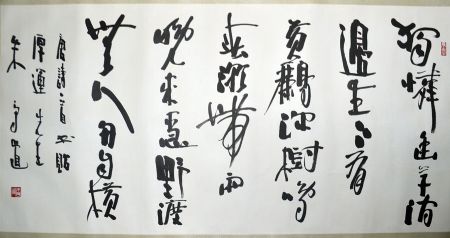 獨憐幽草澗
邊生上有
黃鸝深樹鳴
春潮帶雨
晚來急野渡
無人舟自橫
唐詩一首
厚運先生
朱守道